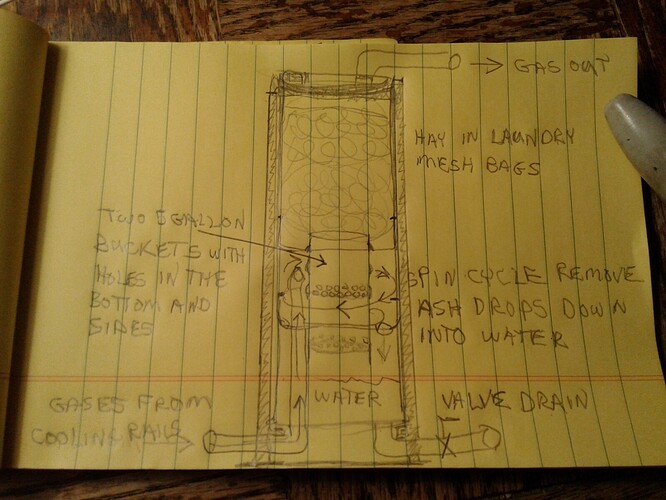 GAS OUT
HAY IN LAUNDRY
MESH BAGS
TWO 5 GALLON
BUCKETS WITH
HOLES IN THE
BOTTOM AND
SIDES
SPIN CYCLE REMOVE
ASH DROPS DOWN
INTO WATER
GASES FROM
COOLING RAILS
WATER
VALVE DRAIN